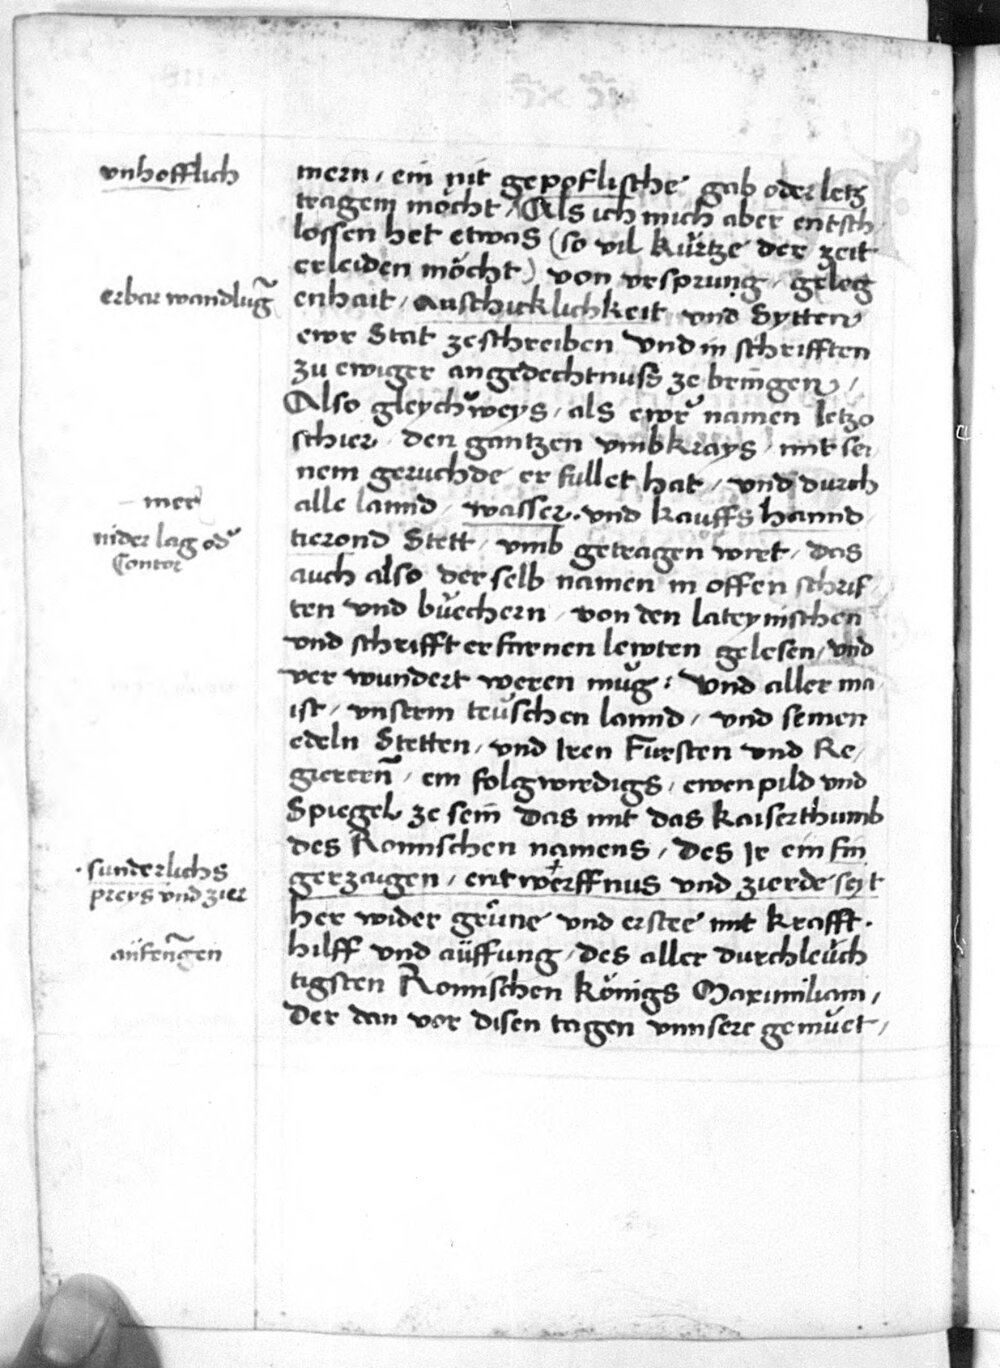 vnhofflich
mern / ein nit gepoflische gab oder letz
tragem möcht / Als ich mich aber entsch
lossen het etwas (so vil kürtze der zeit
erleiden möcht) von vrsprung / geleg
erbar wandlūg
enhait / auschicklichkeit vnd Sytten
ewr Stat ze schreiben vnd in schrifften
zu ewiger angedechtnuss ze bringen /
Also gleych weys / als ewr namen letzo
schier / den gantzen vmbkrays / mit sei
nem geruchde er fullet hat / vnd durch
mer
alle lannd / wasser . vnd kauffs hannd
nider lag od
Contor
tierond Stett / vmb getragen wirt / das
auch also der selb namen in offen schrif
ten vnd büechern / von den lateynischen
vnd schrifft erfarnen lewten gelesen / vnd
ver wundert weren müg : Vnd aller ma
ist / vnserm teüschen lannd / vnd seinen
edeln Stetten / vnd Iren Fursten vnd Re
gierern / ein folgwirdigs / ewen pild vnd
Spiegel ze sein das mit das kaiserthumb
des Romischen namens / des Ir ein fin
sunderlichs
preys vnd zier
gerzaigen / entwerffnus vnd zierde seyt
her wider grüne vnd erstee mit krafft .
anfengen
hilff vnd aüffung / des aller durchleüch
tigsten Romischen königs Maximiliani /
Der dan vor disen tagen vnnsere gemüet /